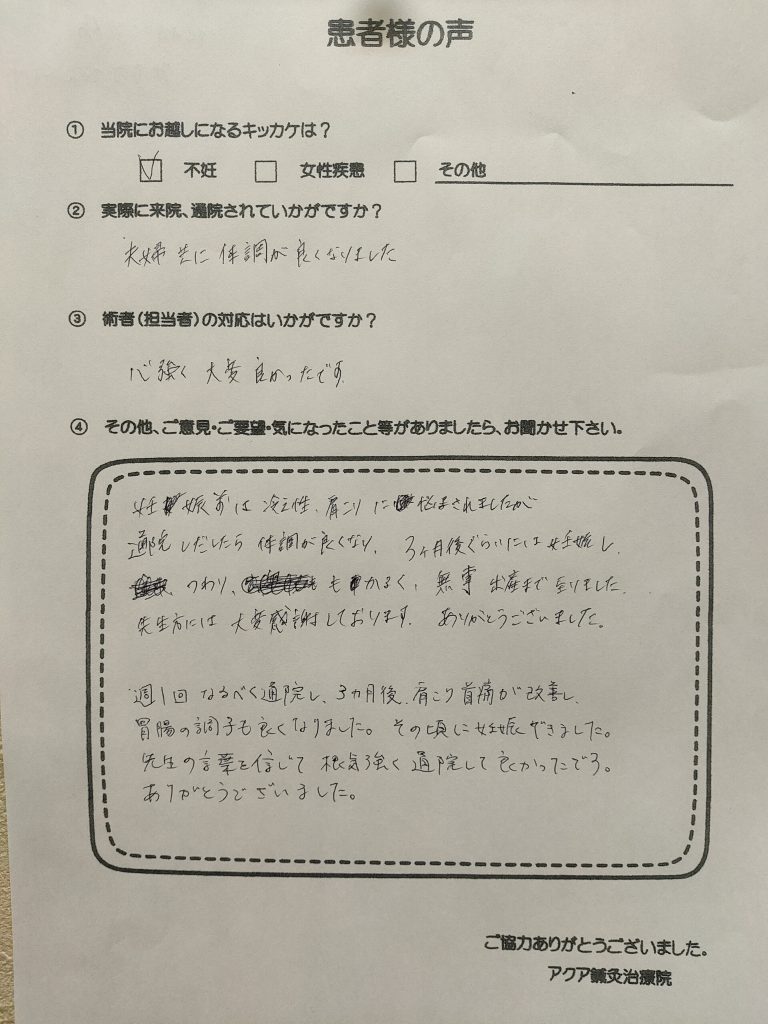 患者様の声
① 当院にお越しになるキッカケは？
☑ 不妊 □ 女性疾患 □ その他
② 実際に来院、通院されていかがですか？
夫婦共に 体調が良くなりました
③ 術者(担当者)の対応はいかがですか？
心強く 大変 良かったです
④ その他、ご意見・ご要望・気になったこと等がありましたら、お聞かせ下さい。
妊娠前は 冷え性、肩こり に悩まされましたが
通院しだしたら 体調が良くなり、3ヶ月後ぐらいには妊娠し、
つわり、も かるく、無事 出産まで 至りました。
先生方には 大変感謝しております。ありがとうございました。
週1回 なるべく通院し、3カ月後、肩こり 首痛が改善し、
胃腸の調子も良くなりました。その頃に妊娠できました。
先生の言葉を信じて 根気強く 通院して 良かったです。
ありがとうございました。
ご協力ありがとうございました。
アクア鍼灸治療院